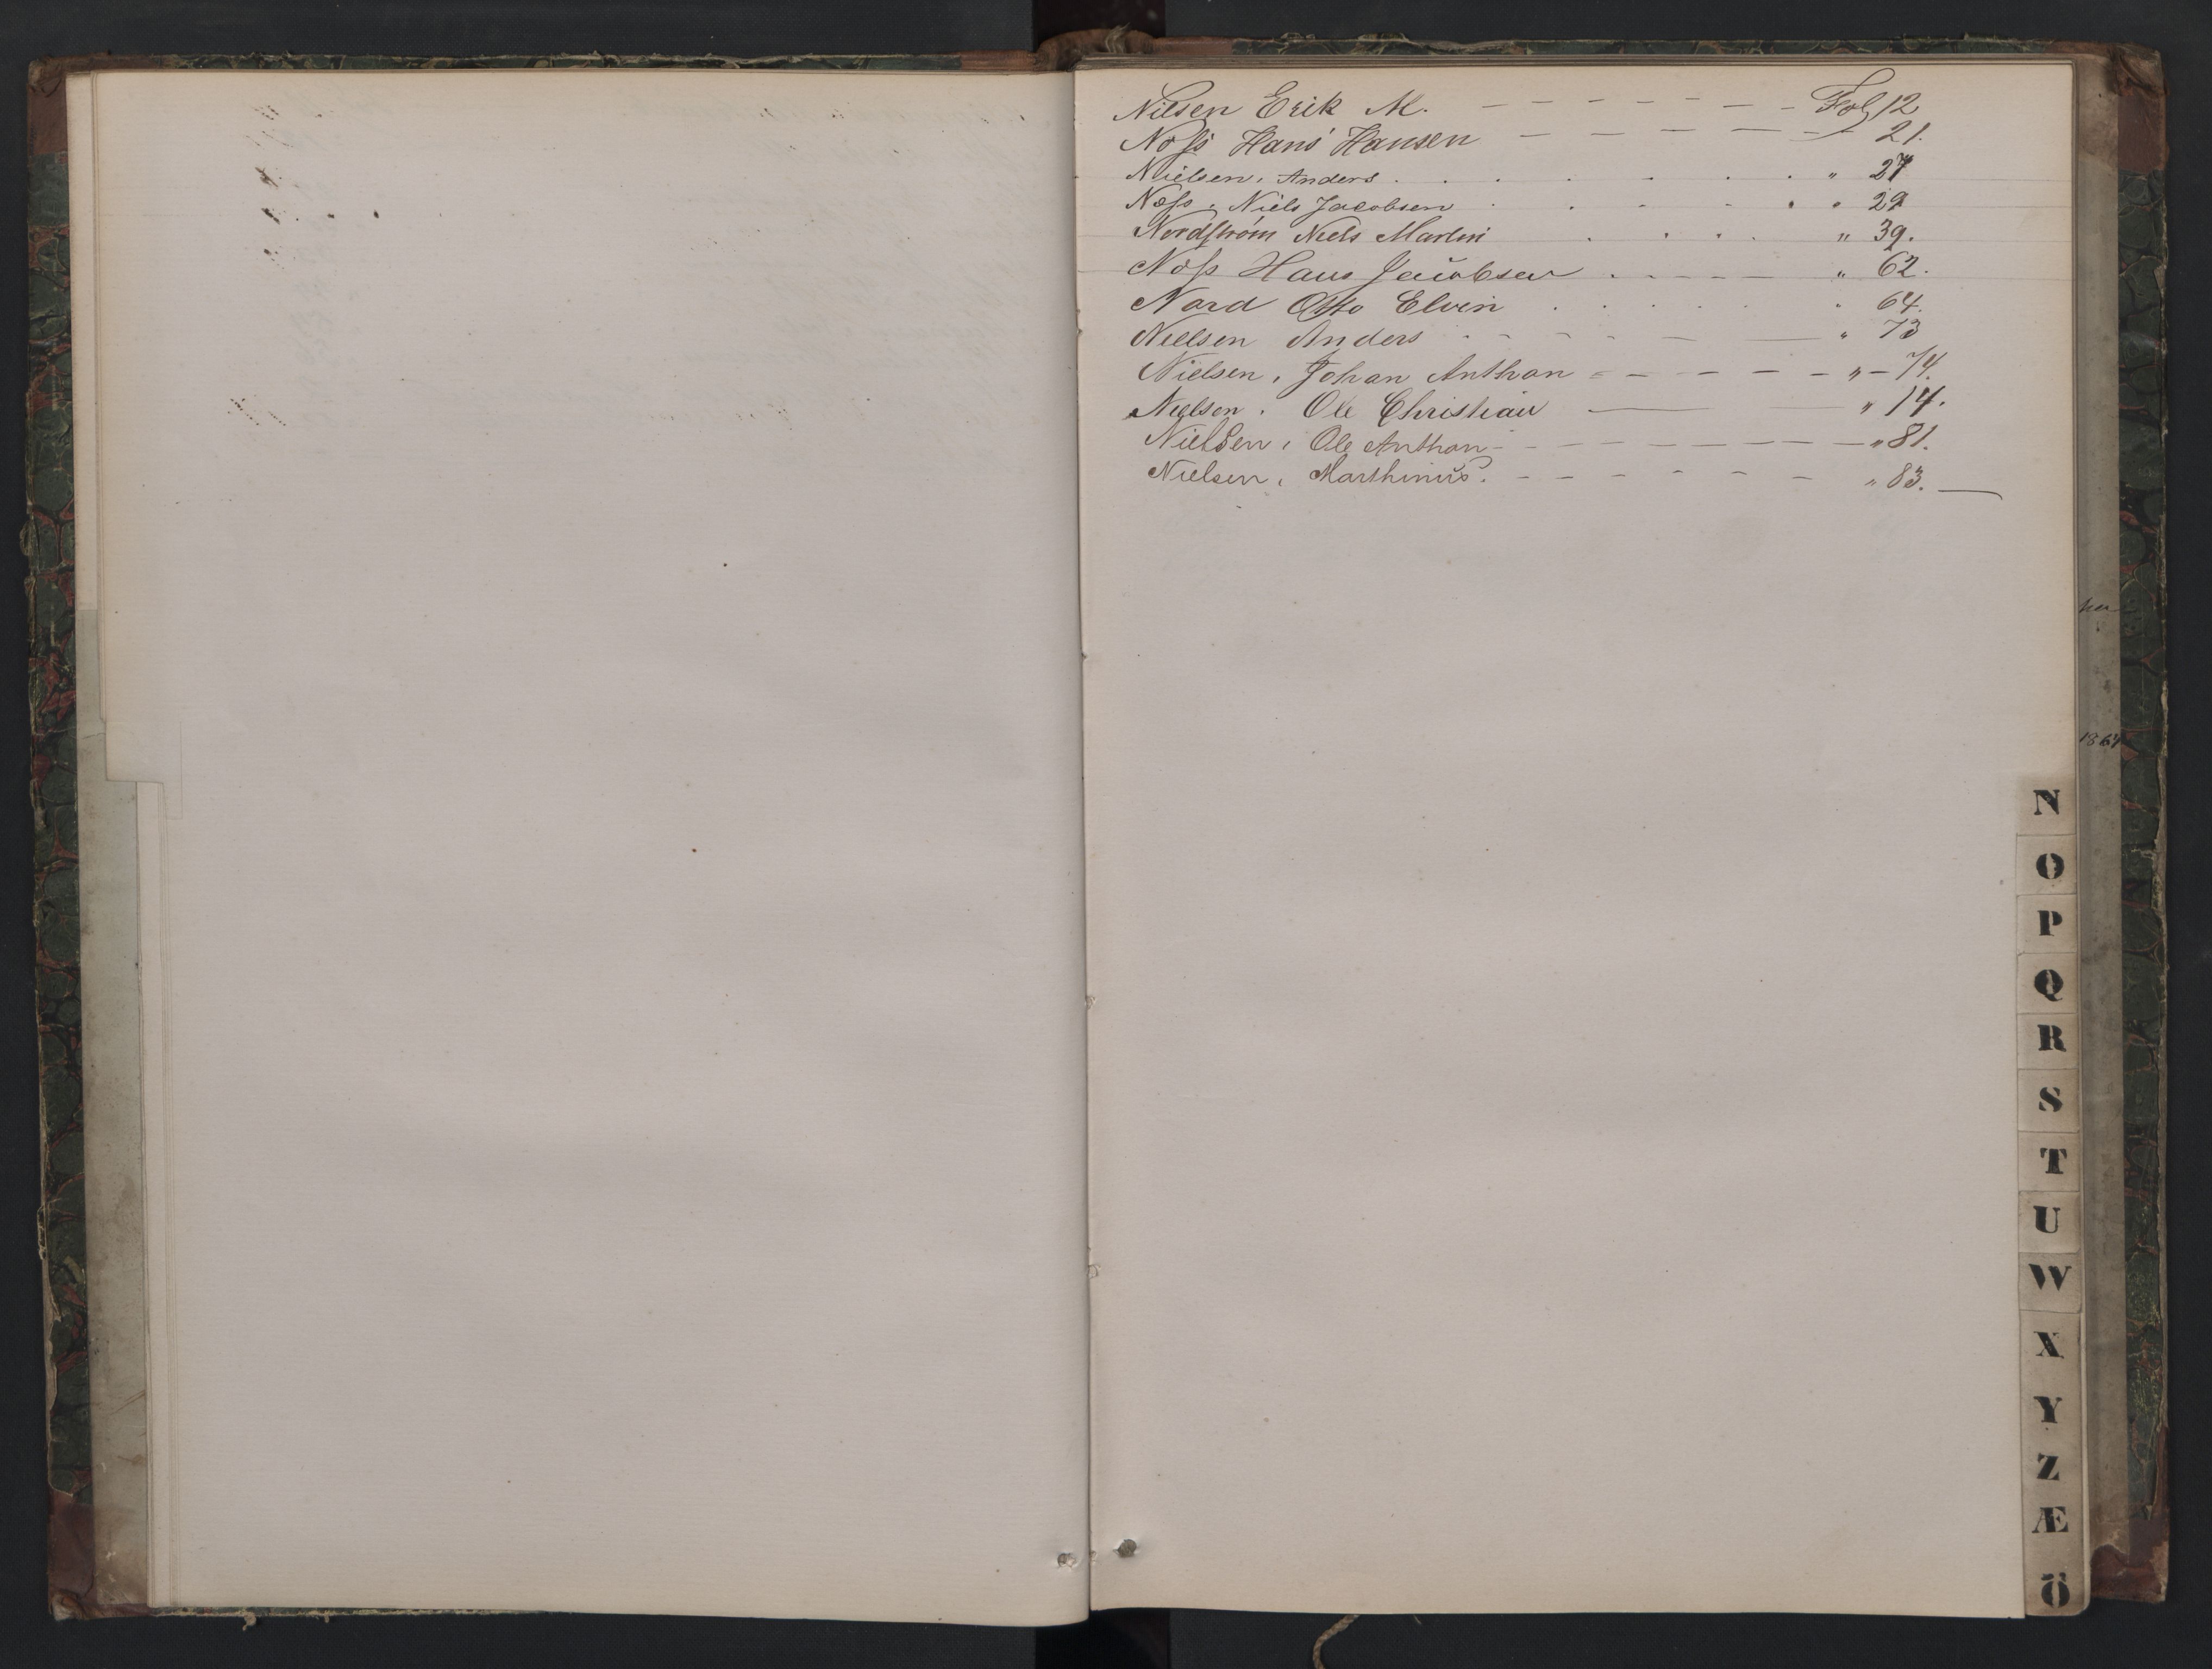 Nilsen Erik M. – – – – – – – Fol 12
Næss Hans Hansen – – – – – – 21.
Nielsen, Anders . . . . . . . " 27
Næss, Niels Jacobsen . . . . . " 29
Nordstrøm Niels Martin . . . . " 39.
Næss Hans Jacobsen . – – – – " 62.
Nord Otto Elvin . . . . . " 64.
Nielsen Anders – – – – – — " 73
Nielsen, Johan Anthon – – – – – – " – 74.
Nielsen, Ole Christian — — " 74.
Nielsen, Ole Anthon – – – – – – – – — " 81.
Nielsen, Marthinus. – – – – – – – " 83. —
1867
N
O
P
Q
R
S
T
U
W
X
Y
Z
Æ
Ö